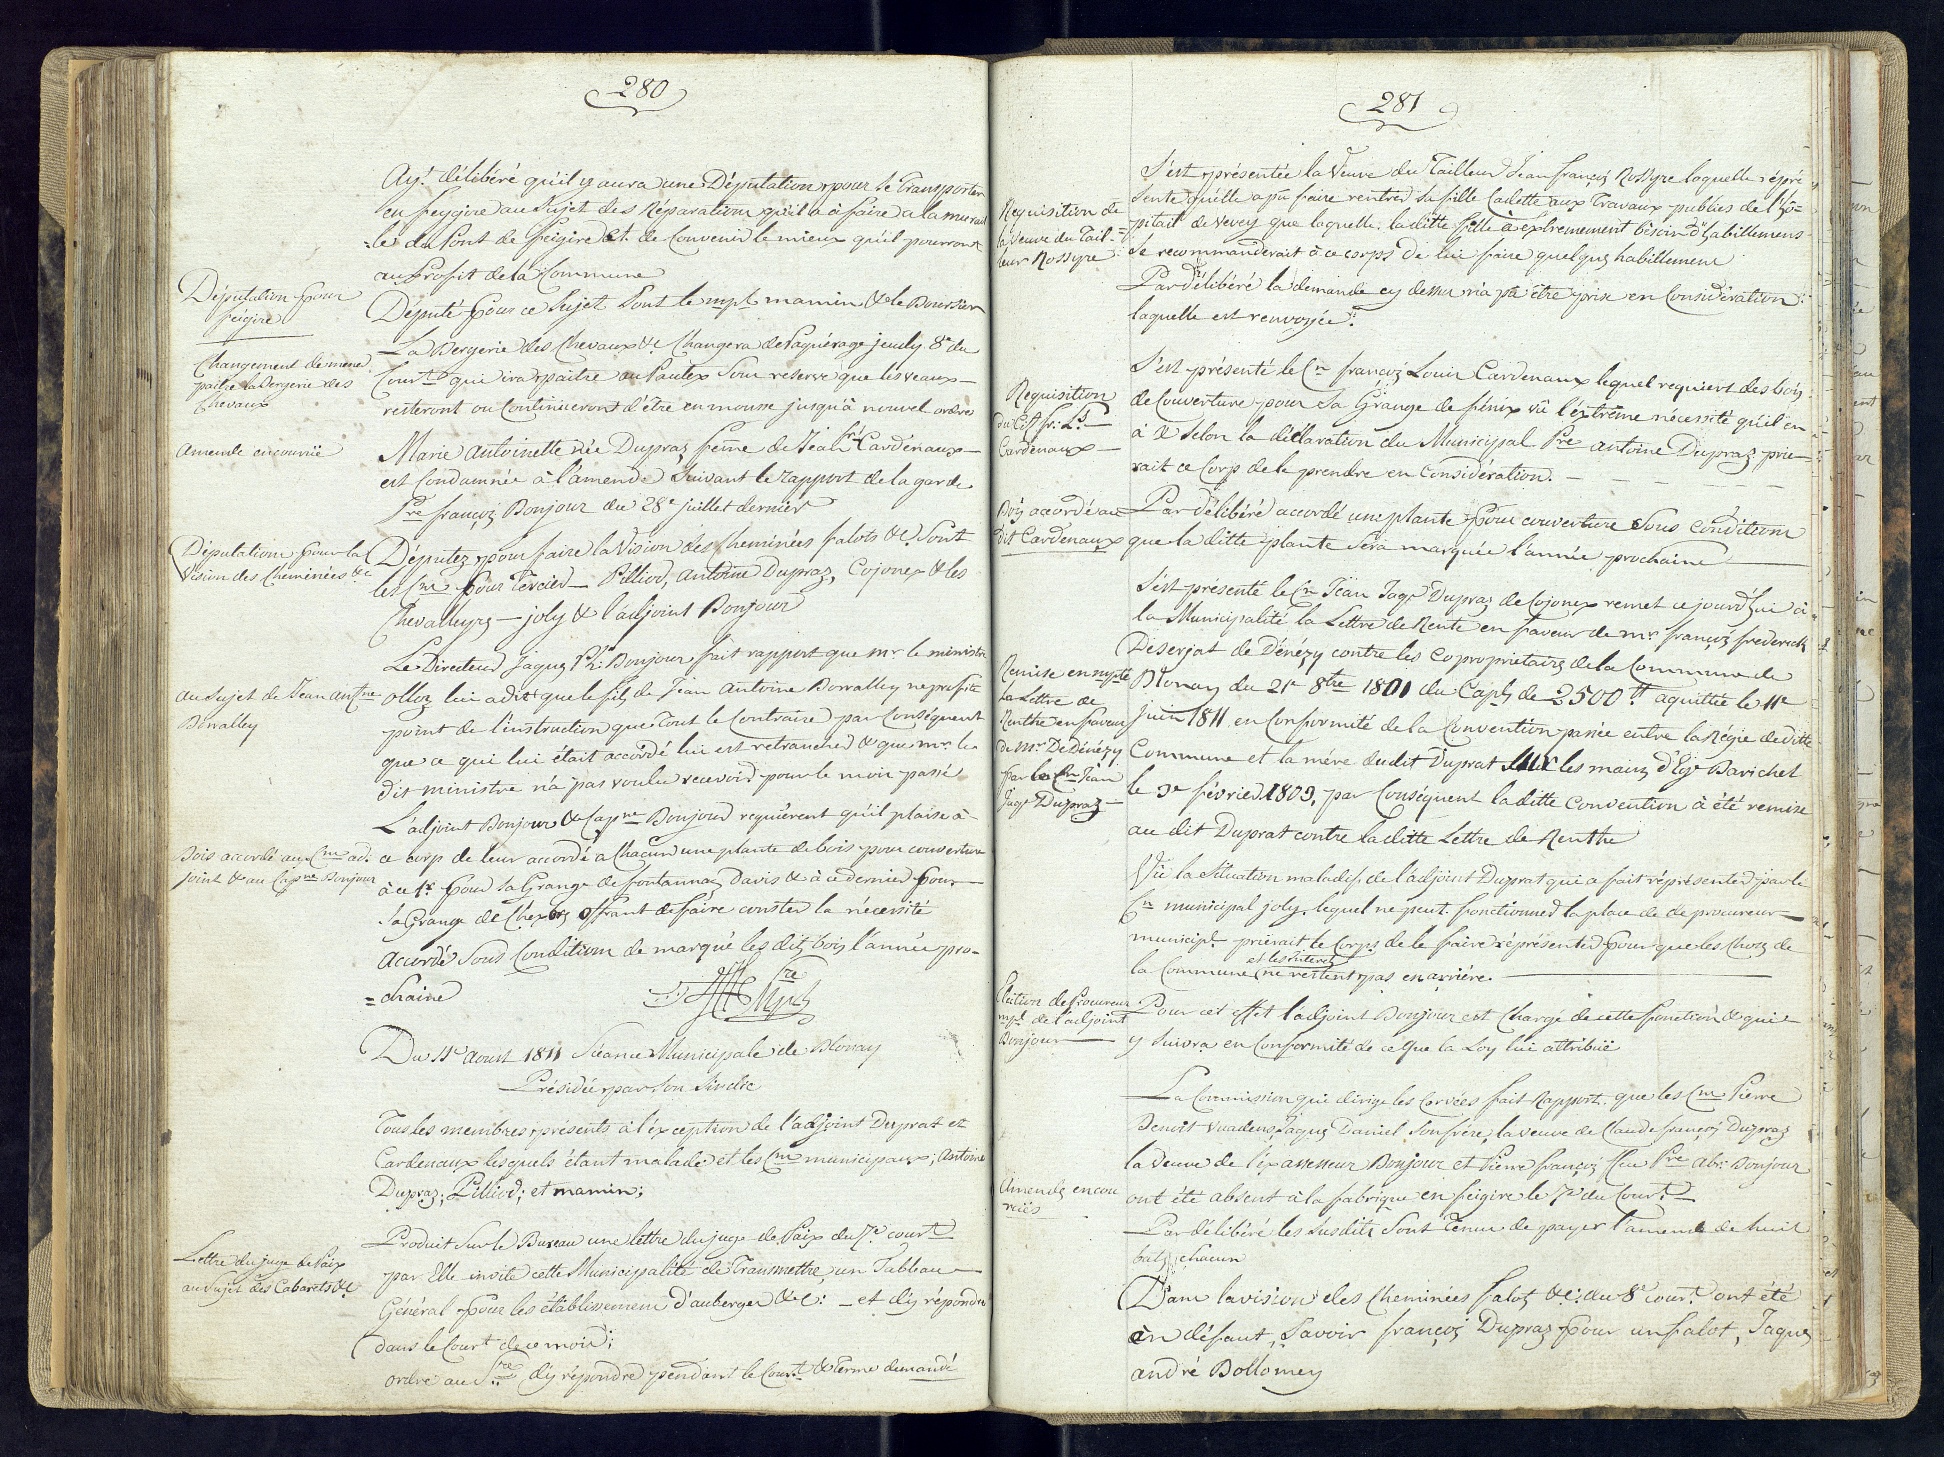 280
Ayt. délibéré qu'il y aura une Députation pour se Transporter
en feygire au Sujet des Réparations qu'il a à faire a la murail
=le du Pont de feigire &t. de Convenir le mieux qu'il pourront
au Profit de la Commune
Députation pour
feigire
Député pour ce Sujet Sont le mpl mamin & le Boursier
Changement de mené
paitre la Bergerie des
Chevaux
La Bergerie des Chevaux &c Changera de Paquérage jeudy 8e du
Court qui ira paitre au Pautex Sous reserve que les veaux
resteront ou Continueront d'être en mousse jusqu'à nouvel ordre
Amende encourüe
Marie Antoinette née Dupraz feme de Jean fri Cardenaux
est Condamnée à l'amende Suivant le rapport de la garde
Pre françoz Bonjour du 28e juillet dernier
Députation pour la
Vision des Cheminées &c
Députez pour faire la Vision des Cheminées falots &c. Sont
les Cns pour Tercier — Pilliod, Antoine Dupraz, Cojonex & les
Chevalleyrs — joly & l'adjoint Bonjour
Le Directeur jaques Ph: Bonjour fait rapport que mr. le ministre
au Sujet de Jean antne
Borralley
olloz lui a dit que le fils de Jean Antoine Borralley ne profite
point de l'instruction que tout le Contraire par Conséquent
que ce qui lui était accordé lui est retrancher & que mr. le
dit ministre n'a pas voulu recevoir pour le mois passé
L'adjoint Bonjour & Capne Bonjour requièrent qu'il plaise à
Bois accordé aux Cns ad-
joint & au Capne Bonjour
ce corp de leur accordé a Chacun une plante de bois pour couverture
à ce 1r. pour sa Grange de fontannaz Davis & à ce dernier pour
sa Grange de Chexbs offrant de faire conster la nécessité
Accordé Sous Condition de marqué les dits bois l'année pro-
=chaine
Du 11e aoust 1811 Séance Municipale de Blonay
Présidée par Son Sindic
Tous les membres présents à l'éxception de l'adjoint Duprat et
Cardenaux lesquels étant malade et les Cns municipaux; Antoine
Dupraz; Pilliod; et mamin;
Lettre du juge de Paix
au Sujet des Cabarets &c
Produit Sur le Bureau une lettre du juge de Paix du 7e court
par Elle invite cette Municipalité de Transmettre un Tableau
Général pour les établissement d'auberges &c: — et d'y répondre
dans le Court de ce mois;
ordre au Sre d'y répondre pendant le Court & Terme demandé
281
S'est présentée la Veuve du Tailleur Jean françoz Rossyre laquelle répré-
Requisition de
la Veuve du Tail=
leur Rossyre
sente qu'elle a pû faire rentrer sa fille Cadette aux Travaux publics de l'hô=
pital de vevey que laquelle: la ditte fille à extremement bésoin d'habillemens
Se recommanderait à ce corps de lui faire quelque habillement
Par délibéré la demande cy dessus n'a pû être prise en Considération
laquelle est renvoyée:
Requisition
du Cit fr: Ls
Cardenaux
S'est présenté le Cn françoz Louis Cardenaux lequel requiert des bois
de Couverture pour sa Grange de fénix vû l'éxtrême nécessité qu'il en
à & Selon la déclaration du Municipal Pre antoine Dupraz prie=
rait ce Corp de le prendre en Considération.
Bois accordé au
dit Cardenaux
Par délibéré accordé une plante pour couverture Sous condition
que la ditte plante Sera marquée l'année prochaine
S'est présenté le Cn Jean Jaqs Dupraz de Cojonex remet ce jourd'hui à
la Municipalité la Lettre de Rente en faveur de mr françoz frederich
Remise en mpté
la Lettre de
Renthe en faveur
de mr. De Dénézy
par le Cn Jean
Jaqs Dupraz
Deserjat de Dénézy contre les Copropriétaires de la Commune de
Blonay du 21e 8bre 1801 du Capl de 2500 tt aquittée le 11e
Juin 1811 en Conformité de la Convention passée entre la Régie de ditte
Commune et la mére du dit Duprat sur les mains d'Egr Bavichet
le 3e février 1809, par Conséquent la ditte Convention à été remise
au dit Duprat contre la ditte Lettre de Renthe
Vû la Situation maladif de l'adjoint Duprat qui a fait réprésenter par le
Cn municipal joly, lequel ne peut fonctionner la place de de procureur
municipl. prierait le Corps de le faire réprésenter pour que les choses de
la Commune et les interets ne restent pas en arriére.
Election de Procureur
mpl de l'adjoint
Bonjour
Pour cet effet l'adjoint Bonjour est Chargé de cette fonction & qui
y Suivra en Conformité de ce que la Loy lui attribüe
La Commission qui dirige les Corvées fait Rapport que les Cns Pierre
Benoit Vuadens, Jaques Daniel Son frére, la veuve de Claude françoi Dupraz
la Veuve de l'éx assesseur Bonjour et Pierre françoi feu Pre abr: Bonjour
Amendes encou
rües
ont été absent à la fabrique en feigire le 7e du Court.
Par délibéré les Susdits Sont Tenus de payer l'amende de huit
batz chacun
Dans la vision des Cheminées falots &c: du 8e court. ont été
en défaut, Savoir françoi Dupraz pour un falot, Jaques
andré Bollomey